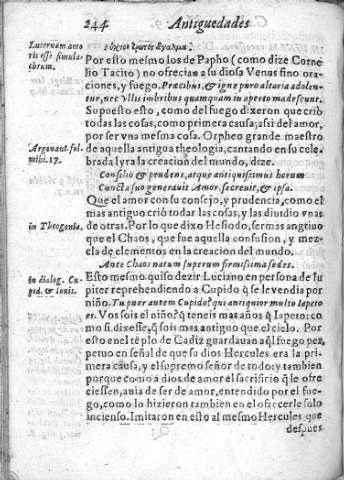 244 Antiguedades
λύχνον ἔρωτος ἄγαλμα.
Laternam amo
ris esse simula
chrum.
Por esto mesmo los de Papho (como dize Corne
lio Tacito) no ofrecian a su diosa Venus sino ora
ciones, y fuego. Præcibus, & igne puro altaria adolen-
tur, nec vllis imbribus quamquam in aperto madescunt.
Supo esto, como del fuego dixeron que criò
todas las cosas, como primera causa; assi del amor,
por ser vna mesma cosa. Orpheo grande maestro
Argonaut. fol.
mihi. 17.
de aquella antigua theologia, cantando en su cele
brada lyra la creacion del mundo, dize.
Consilio & prudens, atque antiquissimus horum
Cuncta suo generauit Amor. secreuit, & ipsa.
Que el amor con su consejo, y prudencia, como el
mas antiguo criò todas las cosas, y las diuidio vnas
in Theogonia.
de otras. Por lo que dixo Hesiodo, ser mas antiguo
que el Chaos, que fue aquella confusion, y mez
cla de elementos en la creacion del mundo.
Ante Chaos natum superum firmissima sedes.
in dialog. Cu
pid. & Iouis.
Esto mesmo quiso dezir Luciano en persona de Iu
piter reprehendiendo a Cupido q̃ se le vendia por
niño. Tu puer autem Cupido? qui antiquior multo Iapeto
es. Vos sois el niño? q̃ teneis mas años q̃ Iapeto: co
mo si dixesse, q̃ sois mas antiguo que el cielo. Por
esto en el tẽplo de Cadiz guardauan aq̃l fuego per
petuo en señal de que su dios Hercules era la pri
mera causa, y el supremo señor de todo: y tambien
porque como a dios de amor el sacrificio q̃ le ofre
ciessen, auia de ser de amor, entendido por el fue-
go, como lo hizieron tambien en el ofrecerle solo
incienso. Imitaron en esto al mesmo Hercules que
despues